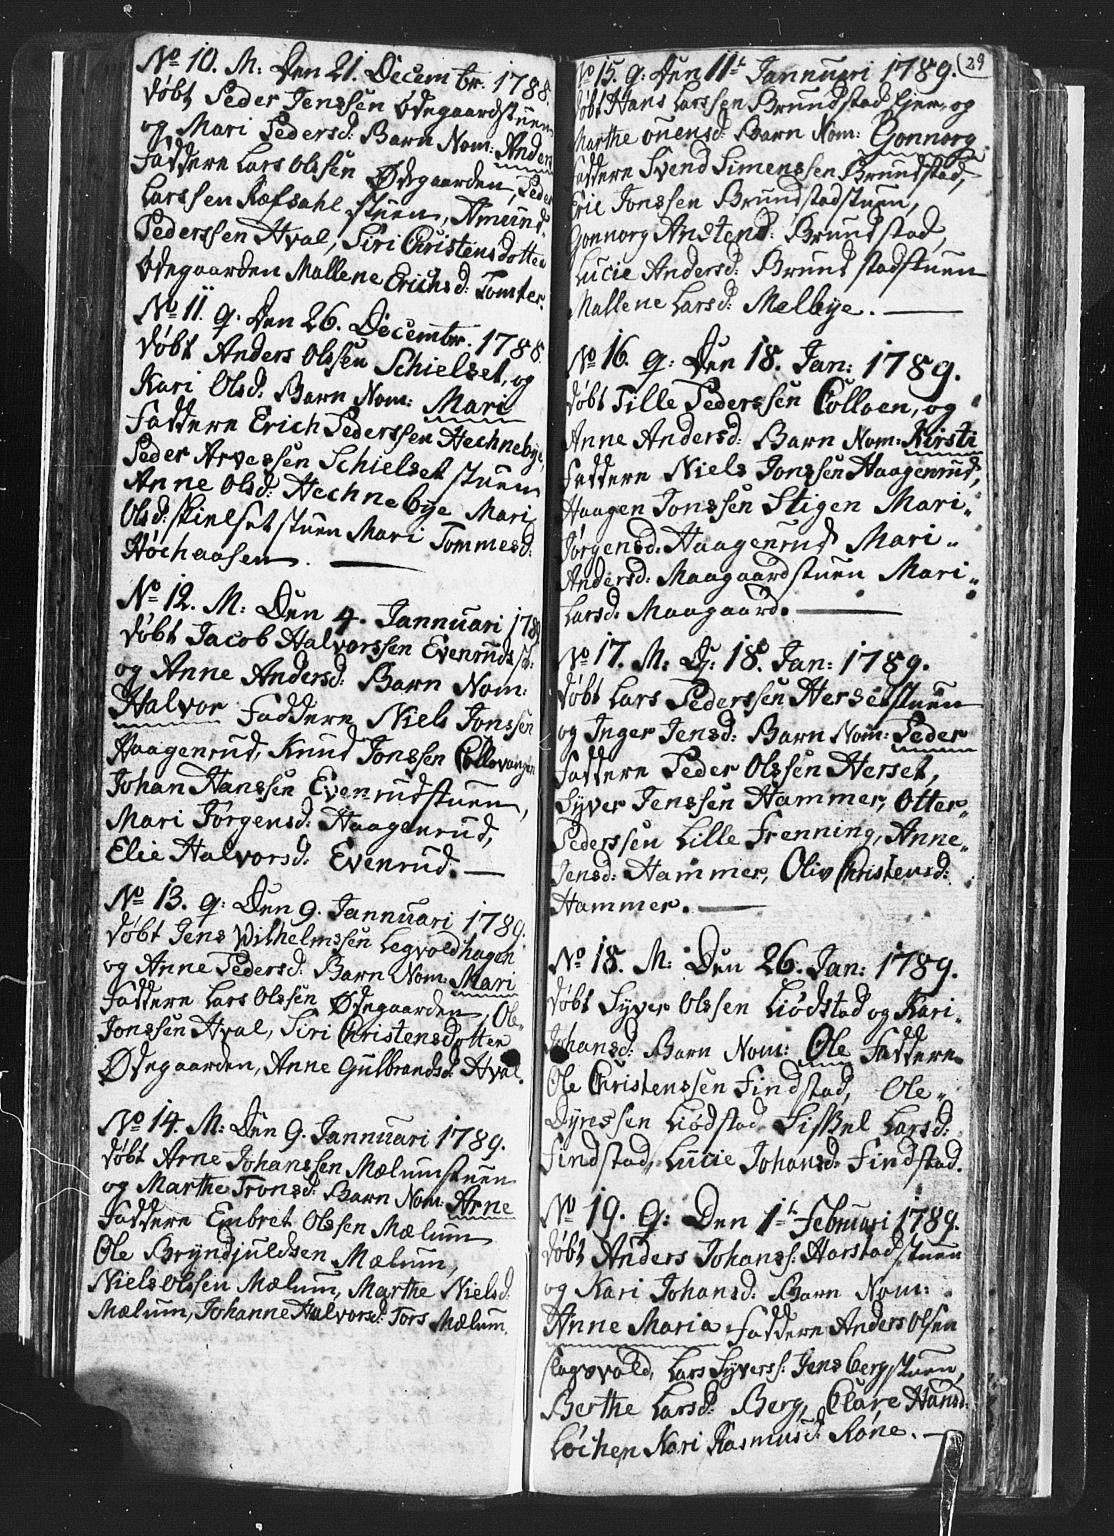 No 10. M: Den 21. Decembr. 1788.
døbt Peder Jenssen Ødegaardstuen
og Mari Pedersd: Barn Nom: Anders
Faddere Lars Olssen Ødegaarden, Peder
Larssen Ræfsahl stuen, Amund
Pederssen Hval, Siri Christensdotter
Ødegaarden Mallene Erichsd: Tomter.
No 11. q: Den 26. Decembr. 1788
døbt Anders Olssen Schielset, og
Kari Olsd: Barn Nom: Mari
Faddere Erich Pederssen Hechnebye,
Peder Arvessen Schielset stuen
Anne Olsd: Hechnebye Mari
Olsd: skielset stuen Mari Tommesd:
Høchaasen.
No 12. M: Den 4. Jannuari 1789
døbt Jacob Halvorssen Evenruds st:
og Anne Andersd: Barn Nom:
Halvor Faddere Niels Jonssen
Haagenrud, Knud Jonssen Collovangen
Johan Hanssen Evenrudstuen,
Mari Jørgensd: Haagenrud,
Elie Halvorsd: Evenrud.
No 13. q: Den 9. Jannuari 1789.
døbt Jens Vilhelmssen Legvoldhagen
og Anne Pedersd: Barn Nom: Mari
Faddere Lars Olssen Ødegaarden, Ole
Jonssen Hval, Siri Christensdotter
Ødegaarden, Anne Gulbrandsd: Hval.
No 14. M: Den 9. Jannuari 1789.
døbt Arne Johanssen Mælumstuen
og Marthe Tronsd: Barn Nom: Arne
Faddere Embret Olssen Mælum
Ole Bryndjuldsen Mælum,
Niels Olssen Mælum, Marthe Nielsd:
Mælum, Johanne Halvorsd: Tors Mælum.
29
No 15. q: Den 11t Jannuari 1789.
døbt Hans Larssen Brundstad Ejer, og
Marthe Ouensd: Barn Nom: Gonnorg
Faddere Svend Simenssen Brundstad,
Eric Jonssen Brundstadstuen,
Gonnorg Anstensd: Brundstad,
Lucie Andersd: Brundstadstuen
Mallene Larsd: Melbye.
No 16. q: Den 18. Jan: 1789.
døbt Tille Pederssen Colloen, og
Anne Andersd: Barn Nom: Kirsti
Faddere Niels Jonssen Haagenrud,
Haagen Jonssen Stigen Mari
Jørgensd: Haagenrud Mari
Andersd: Maagaardstuen Mari
Larsd: Maagaard.
No 17. M: D: 18. Jan: 1789.
døbt Lars Pederssen Hersetstuen
og Inger Jensd: Barn Nom: Peder
Faddere Peder Olssen Herset,
Syver Jenssen Hammer, Otter
Pederssen Lille Frenning, Anne
Jensd: Hammer, Oliv Christensd:
Hammer.
No 18. M: Den 26. Jan: 1789.
døbt Syver Olssen Liødstad og Kari
Johansd: Barn Nom: Ole Faddere
Ole Christenssen Findstad, Ole
Dynssen Liødstad Sissel Larsd:
Findstad, Lucie Johansd: Findstad.
No 19. q: Den 1t Februari 1789.
døbt Anders Johanss: Harstadstuen
og Kari Johansd: Barn Nom:
Anne Maria Faddere Anders Olsen
slagsvold, Lars Syverss: Jensbergstuen,
Berthe Larsd: Berg, Clare Hansd:
Løchen Kari Rasmusd: Røne.